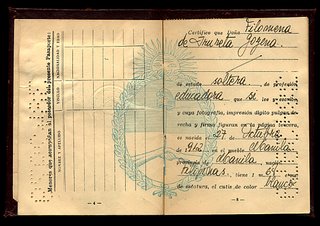 Menores que acompañan al portador del presente Pasaporte:
NOMBRE Y APELLIDO
VINCULO
NACIONALIDAD Y SEXO
— 4 —
Certifico que
Filomena
de Irureta Goyena
de estado soltera de profesión
educadora que si
y cuya fotografía, impresión dígito pulgar
recha y firma figuran en la página tercera,
es nacida el 27 de Octubre
de 1912 en el pueblo Manila
provincia de Manila
Filipinas, tiene 1 m.
de estatura, el cutis de color blanco
— 5 —